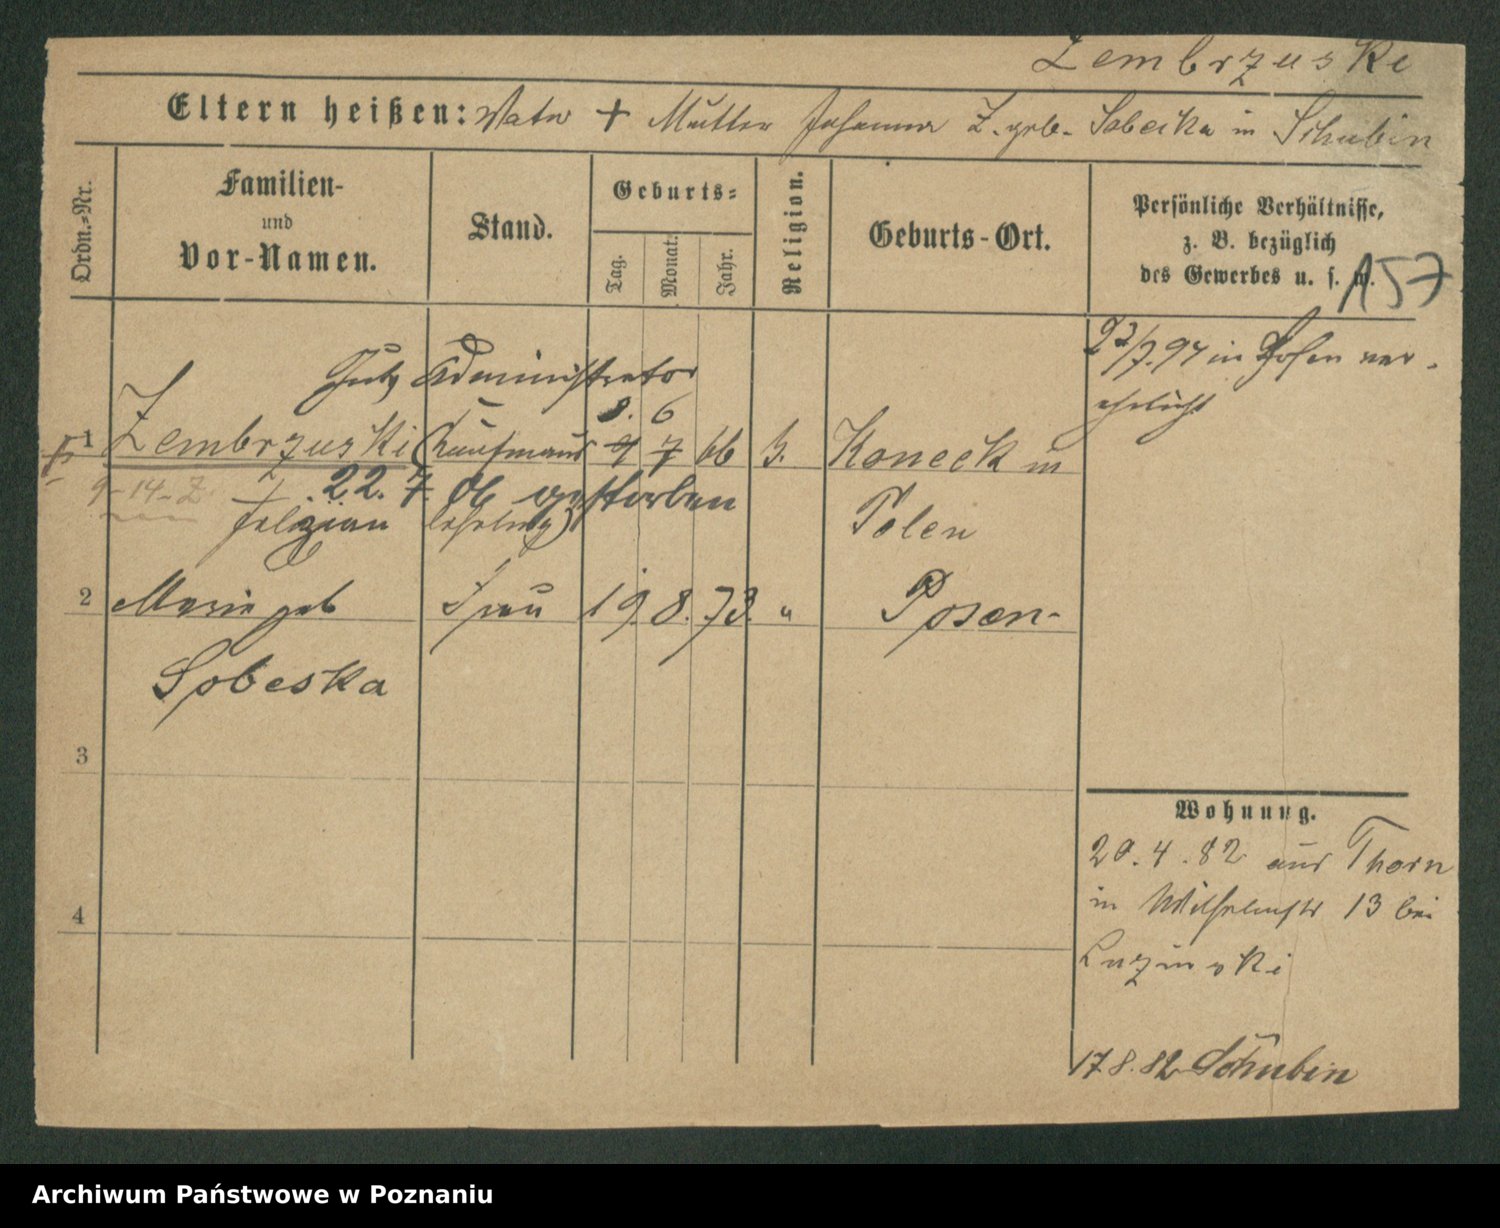 Zembrzuski
Eltern heißen: Vater + Mutter Johanna Z. geb. Sobecka in Schubin
Ordn.-Nr.
Familien-
und
Vor-Namen.
Stand.
Geburts-
Tag.
Monat.
Jahr.
Religion.
Geburts-Ort.
Persönliche Verhältnisse,
z. B. bezüglich
des Gewerbes u. s. w.
157
22/7.97 in Posen ver-
ehelicht
Guts Administrator
8. 6
1 Zembrzuski (Kaufmanns 9 7 66 k. Koneck in
9-14-Z
22. 7. 06 gestorben
Felizian lehrling) Polen
2 Marie geb Frau 19. 8. 73. " Posen-
Sobeska
3
4
Wohnung.
20.4.82 aus Thorn
in Wilhelmstr 13 bei
Luzinski
17.8.82 Schubin
Archiwum Państwowe w Poznaniu